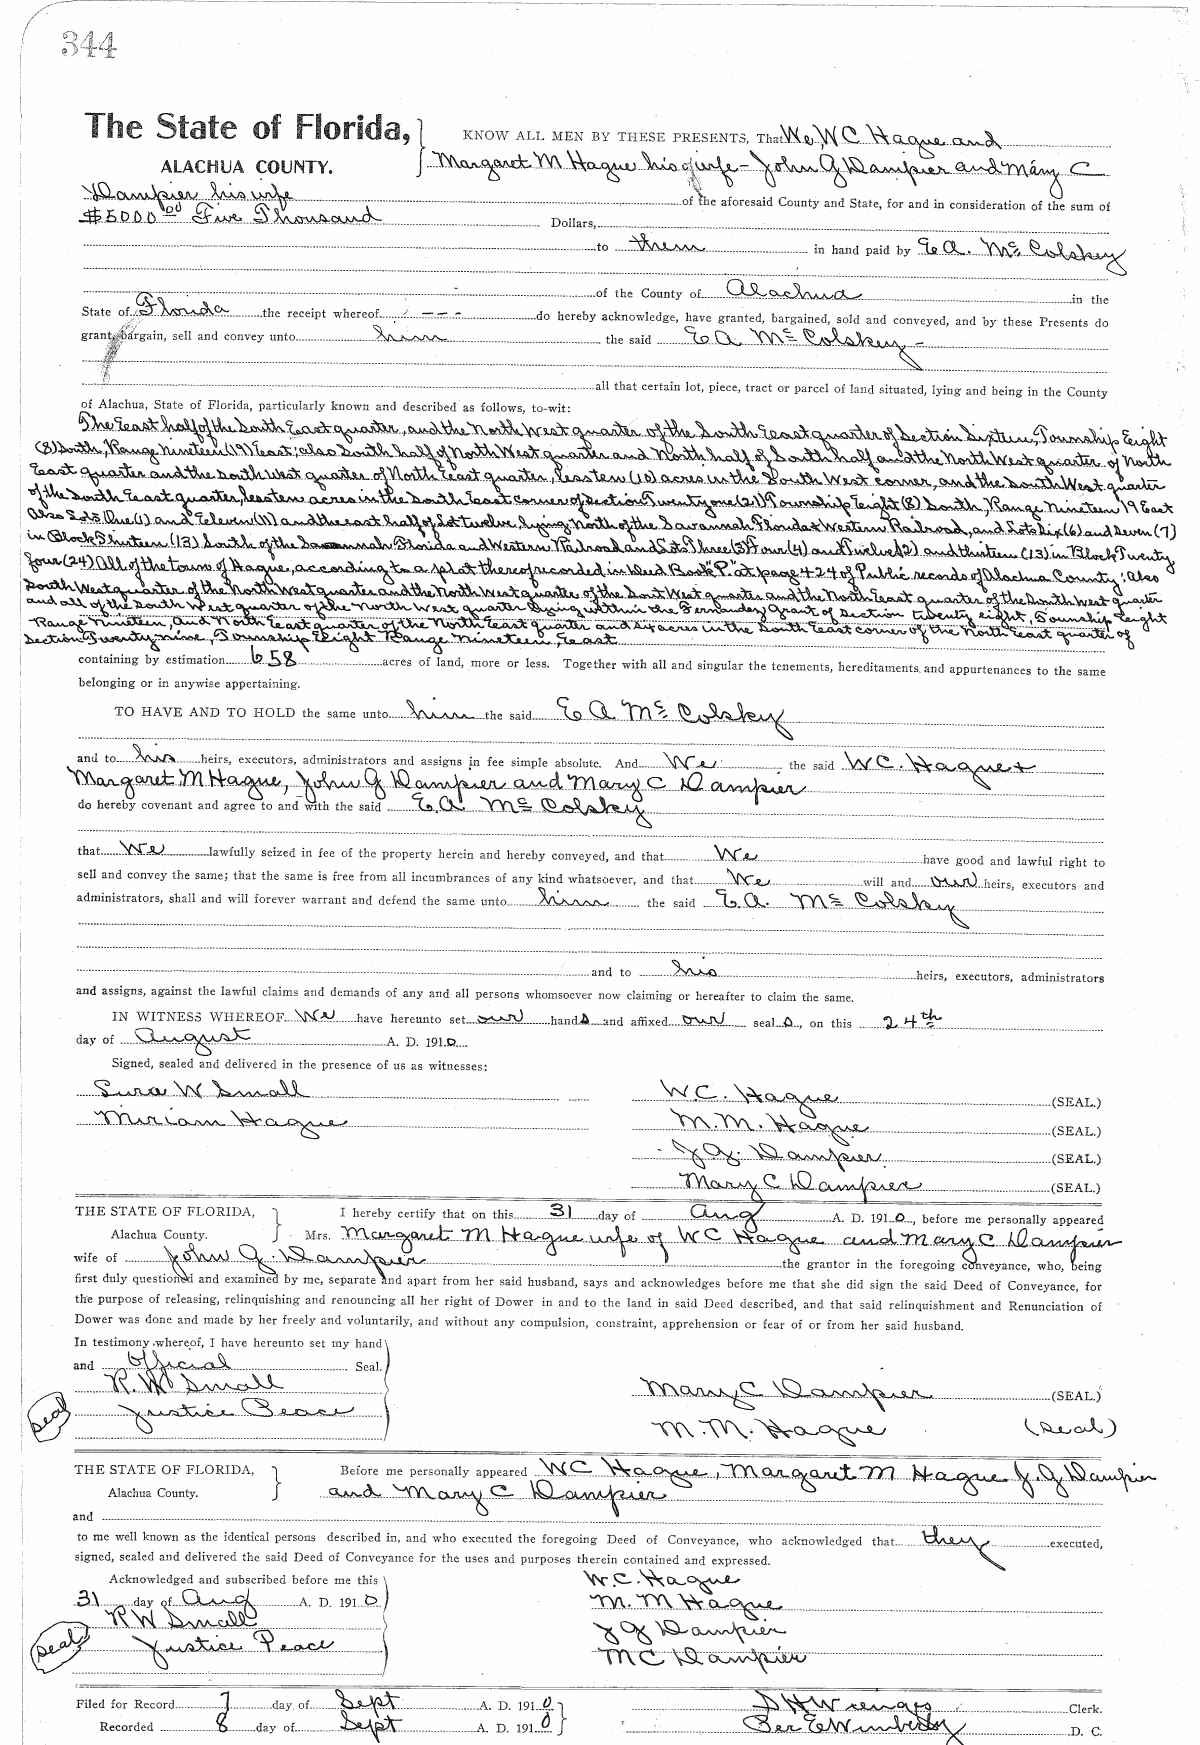 344
The State of Florida, KNOW ALL MEN BY THESE PRESENTS, That We, W C Hague and
ALACHUA COUNTY. Margaret M Hague his wife - John G Dampier and Mary C
Dampier his wife of the aforesaid County and State, for and in consideration of the sum of
$5000 00 Five Thousand Dollars,
to them in hand paid by E A. Mc Colskey
of the County of Alachua in the
State of Florida the receipt whereof - - - do hereby acknowledge, have granted, bargained, sold and conveyed, and by these Presents do
grant, bargain, sell and convey unto him the said E A Mc Colskey -
all that certain lot, piece, tract or parcel of land situated, lying and being in the County
of Alachua, State of Florida, particularly known and described as follows, to-wit:
The East half of the South East quarter, and the North West quarter of the South East quarter of Section Sixteen, Township Eight
(8) South, Range Nineteen (19) East; also South half of North West quarter and North half of South half and the North West quarter of North
East quarter and the South West quarter of North East quarter, less ten (10) acres in the South West corner, and the South West quarter
of the South East quarter, less ten acres in the South East corner of Section Twenty one (21) Township Eight (8) South, Range Nineteen 19 East
Also Lots One (1) and Eleven (11) and the east half of Lot twelve, lying North of the Savannah Florida & Western Railroad, and Lots Six (6) and Seven (7)
in Block Thirteen (13) South of the Savannah Florida and Western Railroad and Lots Three (3) Four (4) and Twelve (12) and thirteen (13) in Block Twenty
four (24) All of the town of Hague, according to a plat thereof recorded in Deed Book "P." at page 424 of Public records of Alachua County; Also
South West quarter of the North West quarter and the North West quarter of the South West quarter and the North East quarter of the South West quarter
and all of the South West quarter of the North West quarter lying within the Fernandez Grant of Section twenty eight, Township Eight
Range Nineteen, and North East quarter of the North East quarter and six acres in the South East corner of the North East quarter of
Section Twenty nine, Township Eight Range Nineteen, East
containing by estimation 658 acres of land, more or less. Together with all and singular the tenements, hereditaments and appurtenances to the same
belonging or in anywise appertaining.
TO HAVE AND TO HOLD the same unto him the said E A Mc Colsky
and to his heirs, executors, administrators and assigns in fee simple absolute. And We the said W C. Hague +
Margaret M Hague, John G Dampier and Mary C Dampier
do hereby covenant and agree to and with the said E.A. Mc Colsky
that We lawfully seized in fee of the property herein and hereby conveyed, and that We have good and lawful right to
sell and convey the same; that the same is free from all incumbrances of any kind whatsoever, and that We will and our heirs, executors and
administrators, shall and will forever warrant and defend the same unto him the said E.A. Mc Colsky
and to his heirs, executors, administrators
and assigns, against the lawful claims and demands of any and all persons whomsoever now claiming or hereafter to claim the same.
IN WITNESS WHEREOF We have hereunto set our hands and affixed our seals, on this 24th
day of August A. D. 1910.
Signed, sealed and delivered in the presence of us as witnesses:
W Small W.C. Hague (SEAL.)
Miriam Hague M.M. Hague (SEAL.)
J.G. Dampier (SEAL.)
Mary C Dampier (SEAL.)
THE STATE OF FLORIDA, I hereby certify that on this 31 day of Aug A. D. 1910, before me personally appeared
Alachua County. Mrs. Margaret M Hague wife of W C Hague and Mary C Dampier
wife of John G. Dampier the grantor in the foregoing conveyance, who, being
first duly questioned and examined by me, separate and apart from her said husband, says and acknowledges before me that she did sign the said Deed of Conveyance, for
the purpose of releasing, relinquishing and renouncing all her right of Dower in and to the land in said Deed described, and that said relinquishment and Renunciation of
Dower was done and made by her freely and voluntarily, and without any compulsion, constraint, apprehension or fear of or from her said husband.
In testimony whereof, I have hereunto set my hand
and Official Seal.
R. W Small Mary C Dampier (SEAL.)
seal Justice Peace M.M. Hague (Seal)
THE STATE OF FLORIDA, Before me personally appeared W C Hague, Margaret M Hague J.G Dampier
Alachua County. and Mary C Dampier
and
to me well known as the identical persons described in, and who executed the foregoing Deed of Conveyance, who acknowledged that they executed,
signed, sealed and delivered the said Deed of Conveyance for the uses and purposes therein contained and expressed.
Acknowledged and subscribed before me this W.C. Hague
31 day of Aug A. D. 1910 M. M Hague
R W Small J G Dampier
seal Justice Peace M C Dampier
Filed for Record 7 day of Sept A. D. 1910 S H Wienges Clerk.
Recorded 8 day of Sept A. D. 1910 Per E Wimberly D. C.